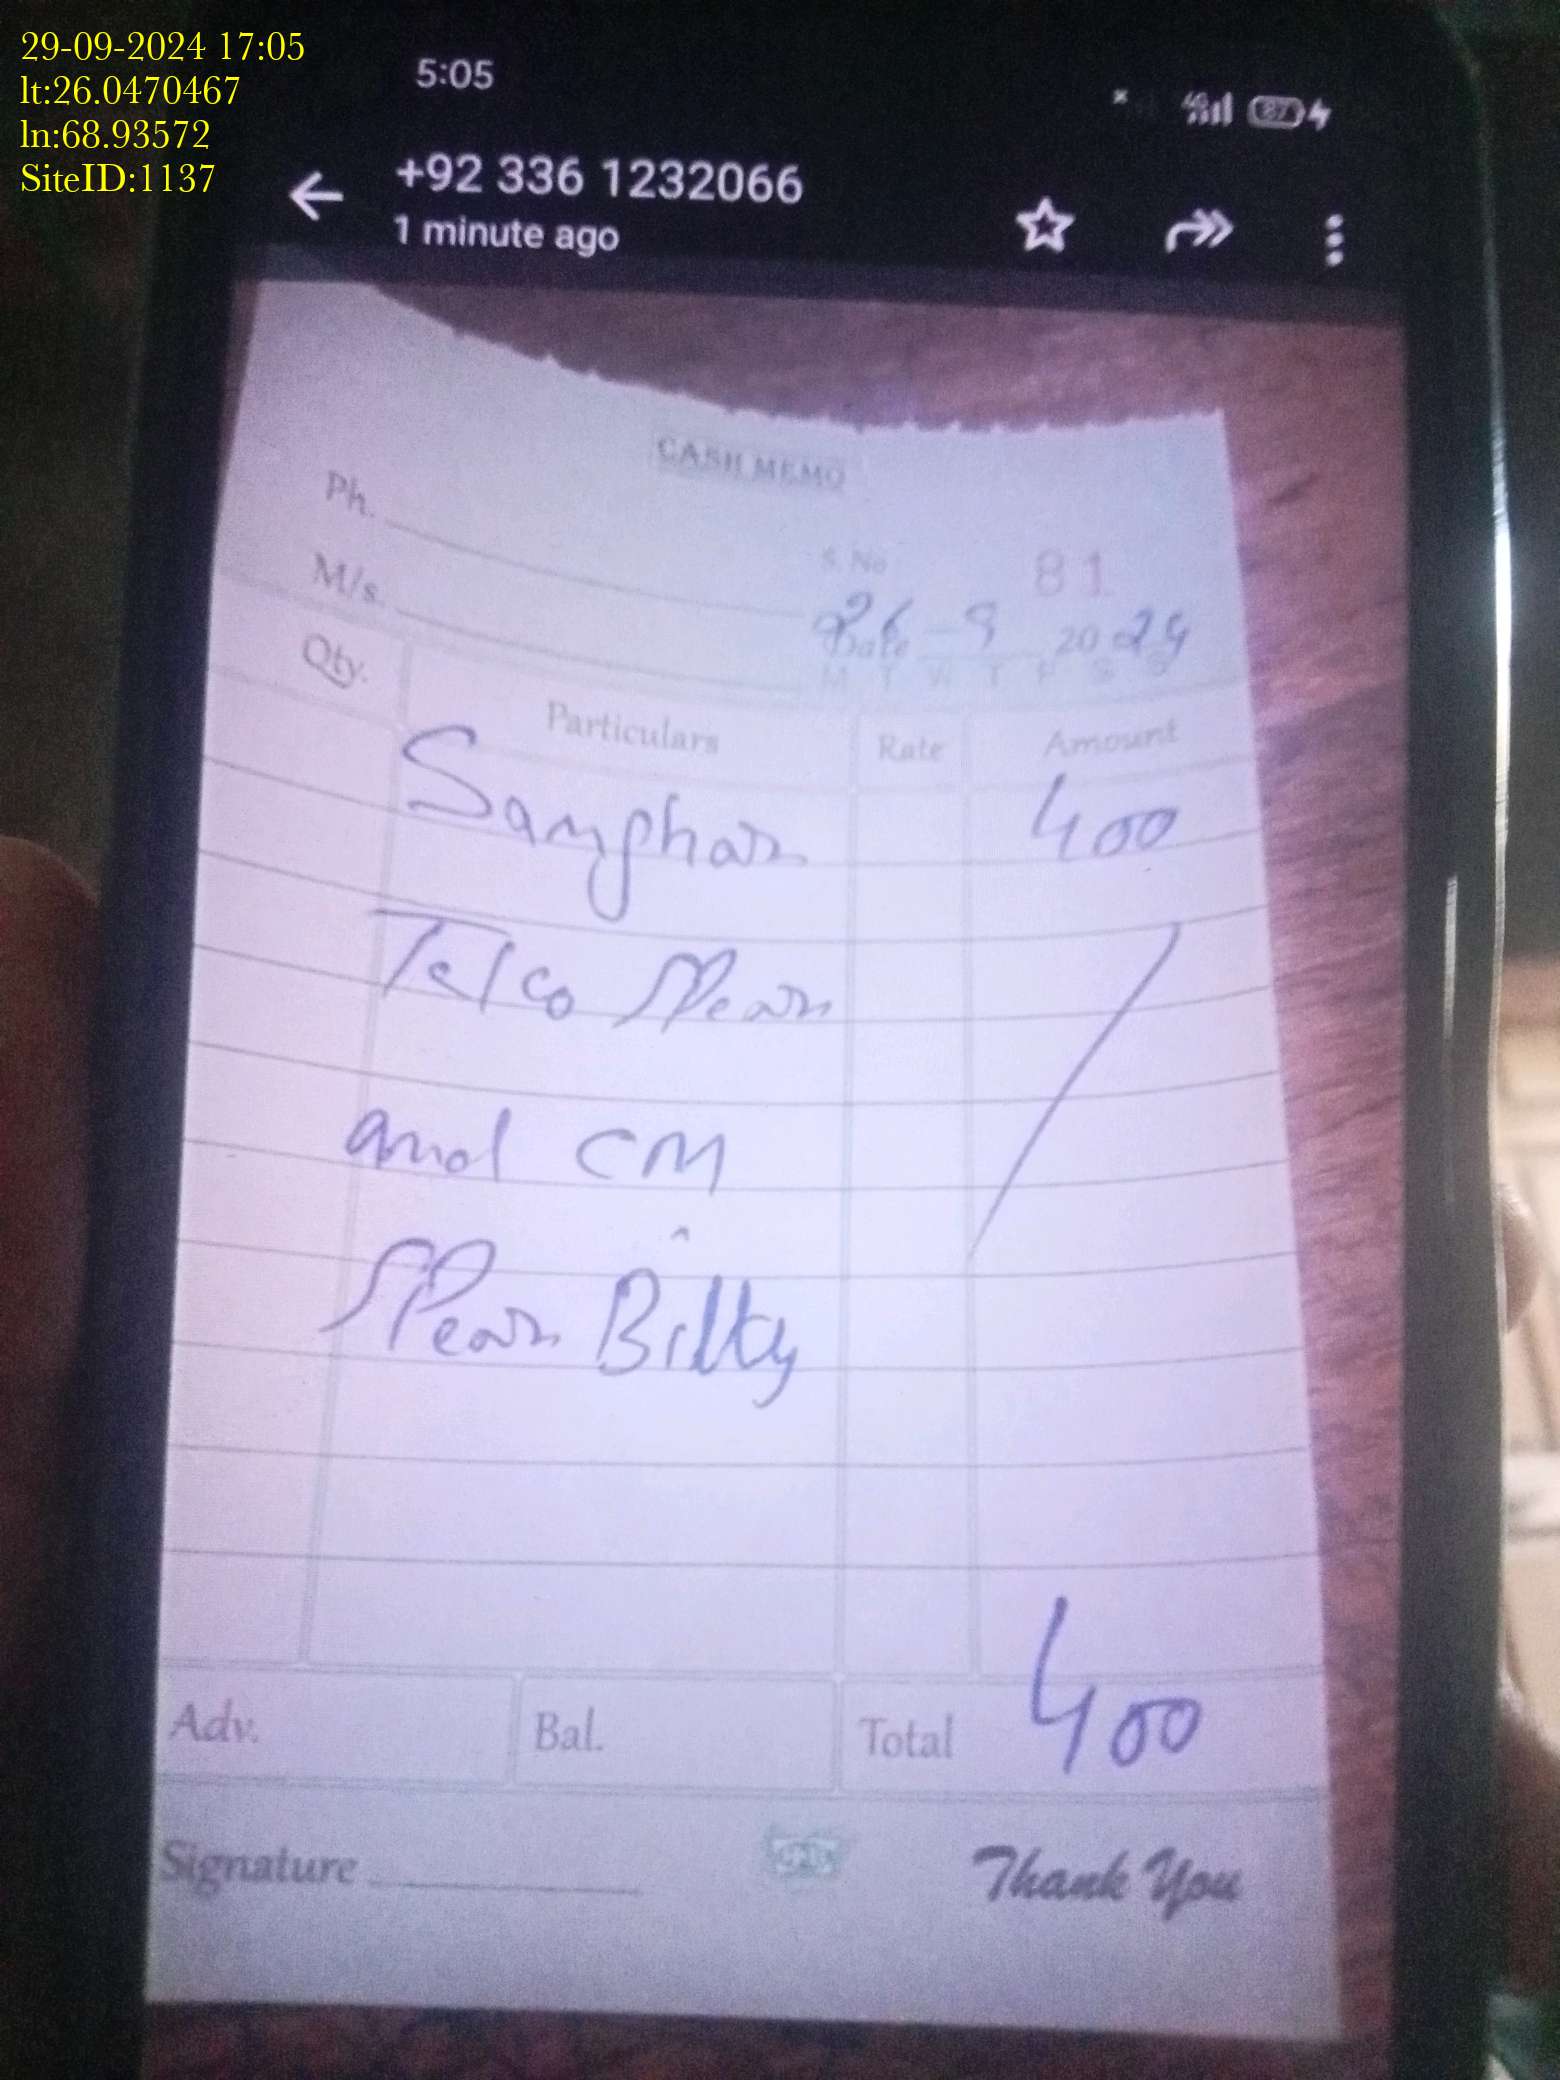 29-09-2024 17:05
lt:26.0470467
ln:68.93572
SiteID:1137
5:05
87
+92 336 1232066
1 minute ago
CASH MEMO
Ph.
S. No 81
M/s.
Date 26-9 2024
M T W T F S S
Qty. Particulars Rate Amount
Sanghar 400
Telco SPear
and CM
SPear Bilty
Adv. Bal. Total 400
Signature Thank You